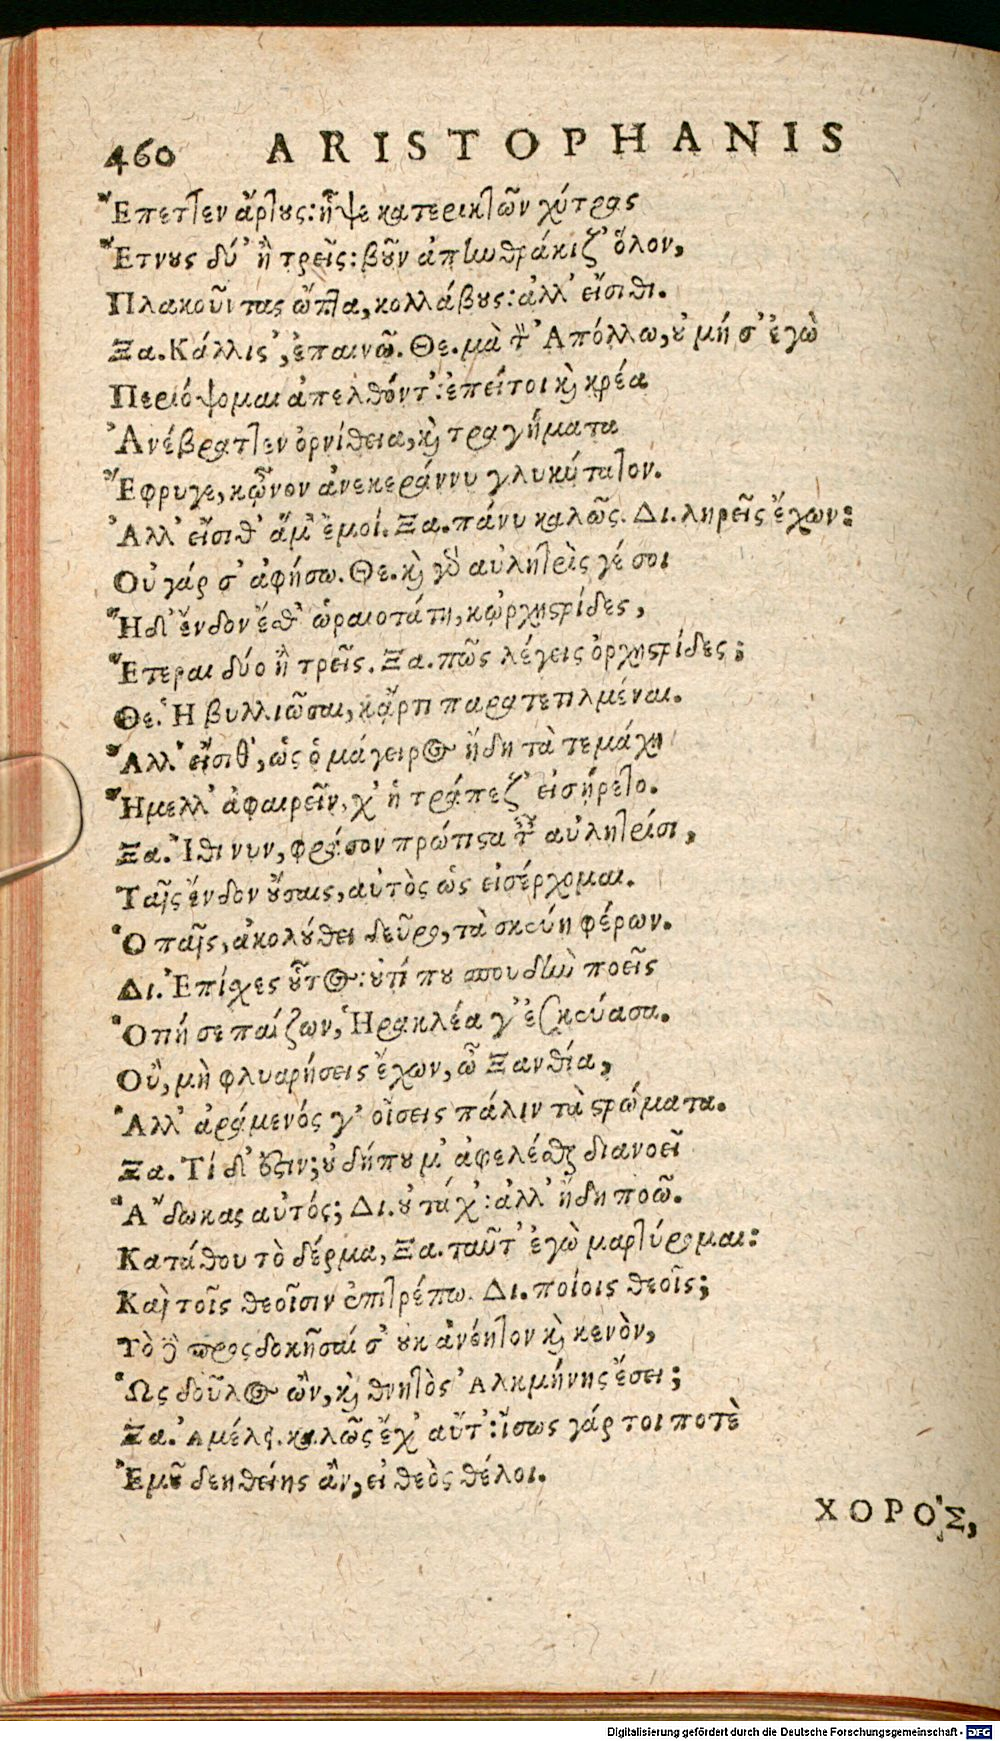 460 ARISTOPHANIS
Ἔπεττεν ἄρτους: ἧψε κατερικτῶν χύτρας
Ἔτνους δύ' ἢ τρεῖς: βοῦν ἀπηνθράκιζ' ὅλον,
Πλακοῦντας ὤπτα, κολλάβους: ἀλλ' εἴσιθι.
Ξα. Κάλλιστ', ἐπαινῶ. Θε. μὰ τ̀ Ἀπόλλω, οὐ μή σ' ἐγὼ
Περιόψομαι ἀπελθόντ': ἐπείτοι καὶ κρέα
Ἀνέβραττεν ὀρνίθεια, καὶ τραγήματα
Ἔφρυγε, κᾦνον ἀνεκεράννυ γλυκύτατον.
Ἀλλ' εἴσιθ' ἅμ' ἐμοί. Ξα. πάνυ καλῶς. Δι. ληρεῖς ἔχων:
Οὐ γάρ σ' ἀφήσω. Θε. καὶ γὸ αὐλητρὶς γέ σοι
Ἤδ' ἔνδον ἔσθ' ὡραιοτάτη, κᾠρχηστρίδες,
Ἕτεραι δύο ἢ τρεῖς. Ξα. πῶς λέγεις ὀρχηστρίδες;
Θε. Ἡ βυλλιῶσαι, κἄρτι παρατετιλμέναι.
Ἀλλ' εἴσιθ', ὡς ὁ μάγειρος ἤδη τὰ τεμάχη
Ἤμελλ' ἀφαιρεῖν, χ' ἡ τράπεζ' εἰσήρετο.
Ξα. Ἴθι νυν, φράσον πρώτιστα τ̃ αὐλητρίσι,
Ταῖς ἔνδον οὔσαις, αὐτὸς ὡς εἰσέρχομαι.
Ὁ παῖς, ἀκολούθει δεῦρο, τὰ σκεύη φέρων.
Δι. Ἐπίσχες οὗτος: οὔτί που σπουδὴν ποεῖς
Ὁτιή σε παίζων, Ἡρακλέα γ' ἐσκεύασα.
Οὔ, μὴ φλυαρήσεις ἔχων, ὦ Ξανθία,
Ἀλλ' ἀράμενός γ' οἴσεις πάλιν τὰ στρώματα.
Ξα. Τί δ' ἔστιν; οὐ δήπου μ' ἀφελέσθαι διανοεῖ
Ἃ ἔδωκας αὐτός; Δι. οὐ τάχ': ἀλλ' ἤδη ποῶ.
Κατάθου τὸ δέρμα, Ξα. ταῦτ' ἐγὼ μαρτύρομαι:
Καὶ τοῖς θεοῖσιν ἐπιτρέπω. Δι. ποίοις θεοῖς;
Τὸ δὲ προςδοκῆσαί σ' οὐκ ἀνόητον καὶ κενὸν,
Ὡς δοῦλος ὢν, καὶ θνητὸς Ἀλκμήνης ἔσει;
Ξα. Ἀμέλει. καλῶς ἔχ' αὔτ': ἴσως γάρ τοι ποτὲ
Ἐμοῦ δεηθείης ἂν, εἰ θεὸς θέλοι.
ΧΟΡΟΣ,
Digitalisierung gefördert durch die Deutsche Forschungsgemeinschaft - DFG